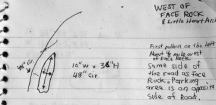 WEST OF
FACE ROCK
& Little Heart
10" W x 36" H
48" Cir.
First pullout on the left
About ½ mile west
of Face Rock.
Same side of
the road as Face
Rock. Parking
area is on opposite
side of road.